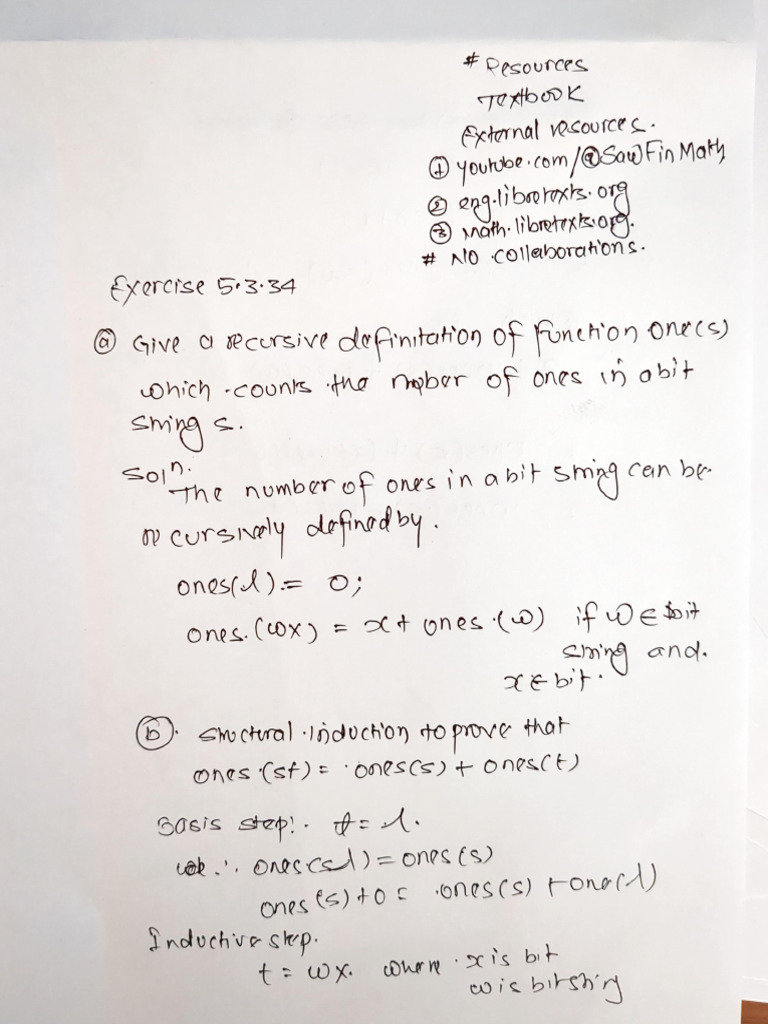 # Resources
Textbook
External resources.
① youtube.com/@SawFinMath
② eng.libretexts.org
③ math.libretexts.org.
# NO collaborations.
Exercise 5.3.34
ⓐ Give a recursive definitation of function one(s)
which counts the nober of ones in a bit
string s.
Solⁿ.
The number of ones in a bit string can be
recursively defined by.
ones(λ) = 0;
ones.(wx) = x + ones.(w) if w ∈ bit
string and.
x ∈ bit.
ⓑ. Structural induction to prove that
ones.(st) = ones(s) + ones(t)
Basis step:. t = λ.
∴ ones(sλ) = ones(s)
ones(s) + 0 = ones(s) + one(λ)
Inductive step.
t = wx. where x is bit
w is bitstring